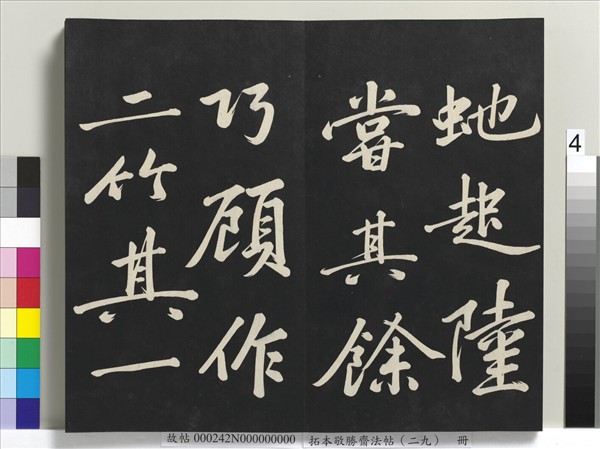 虵起陸
嘗其餘
巧顧作
二竹其一
4
故帖 000242N000000000 拓本敬勝齋法帖(二九) 冊